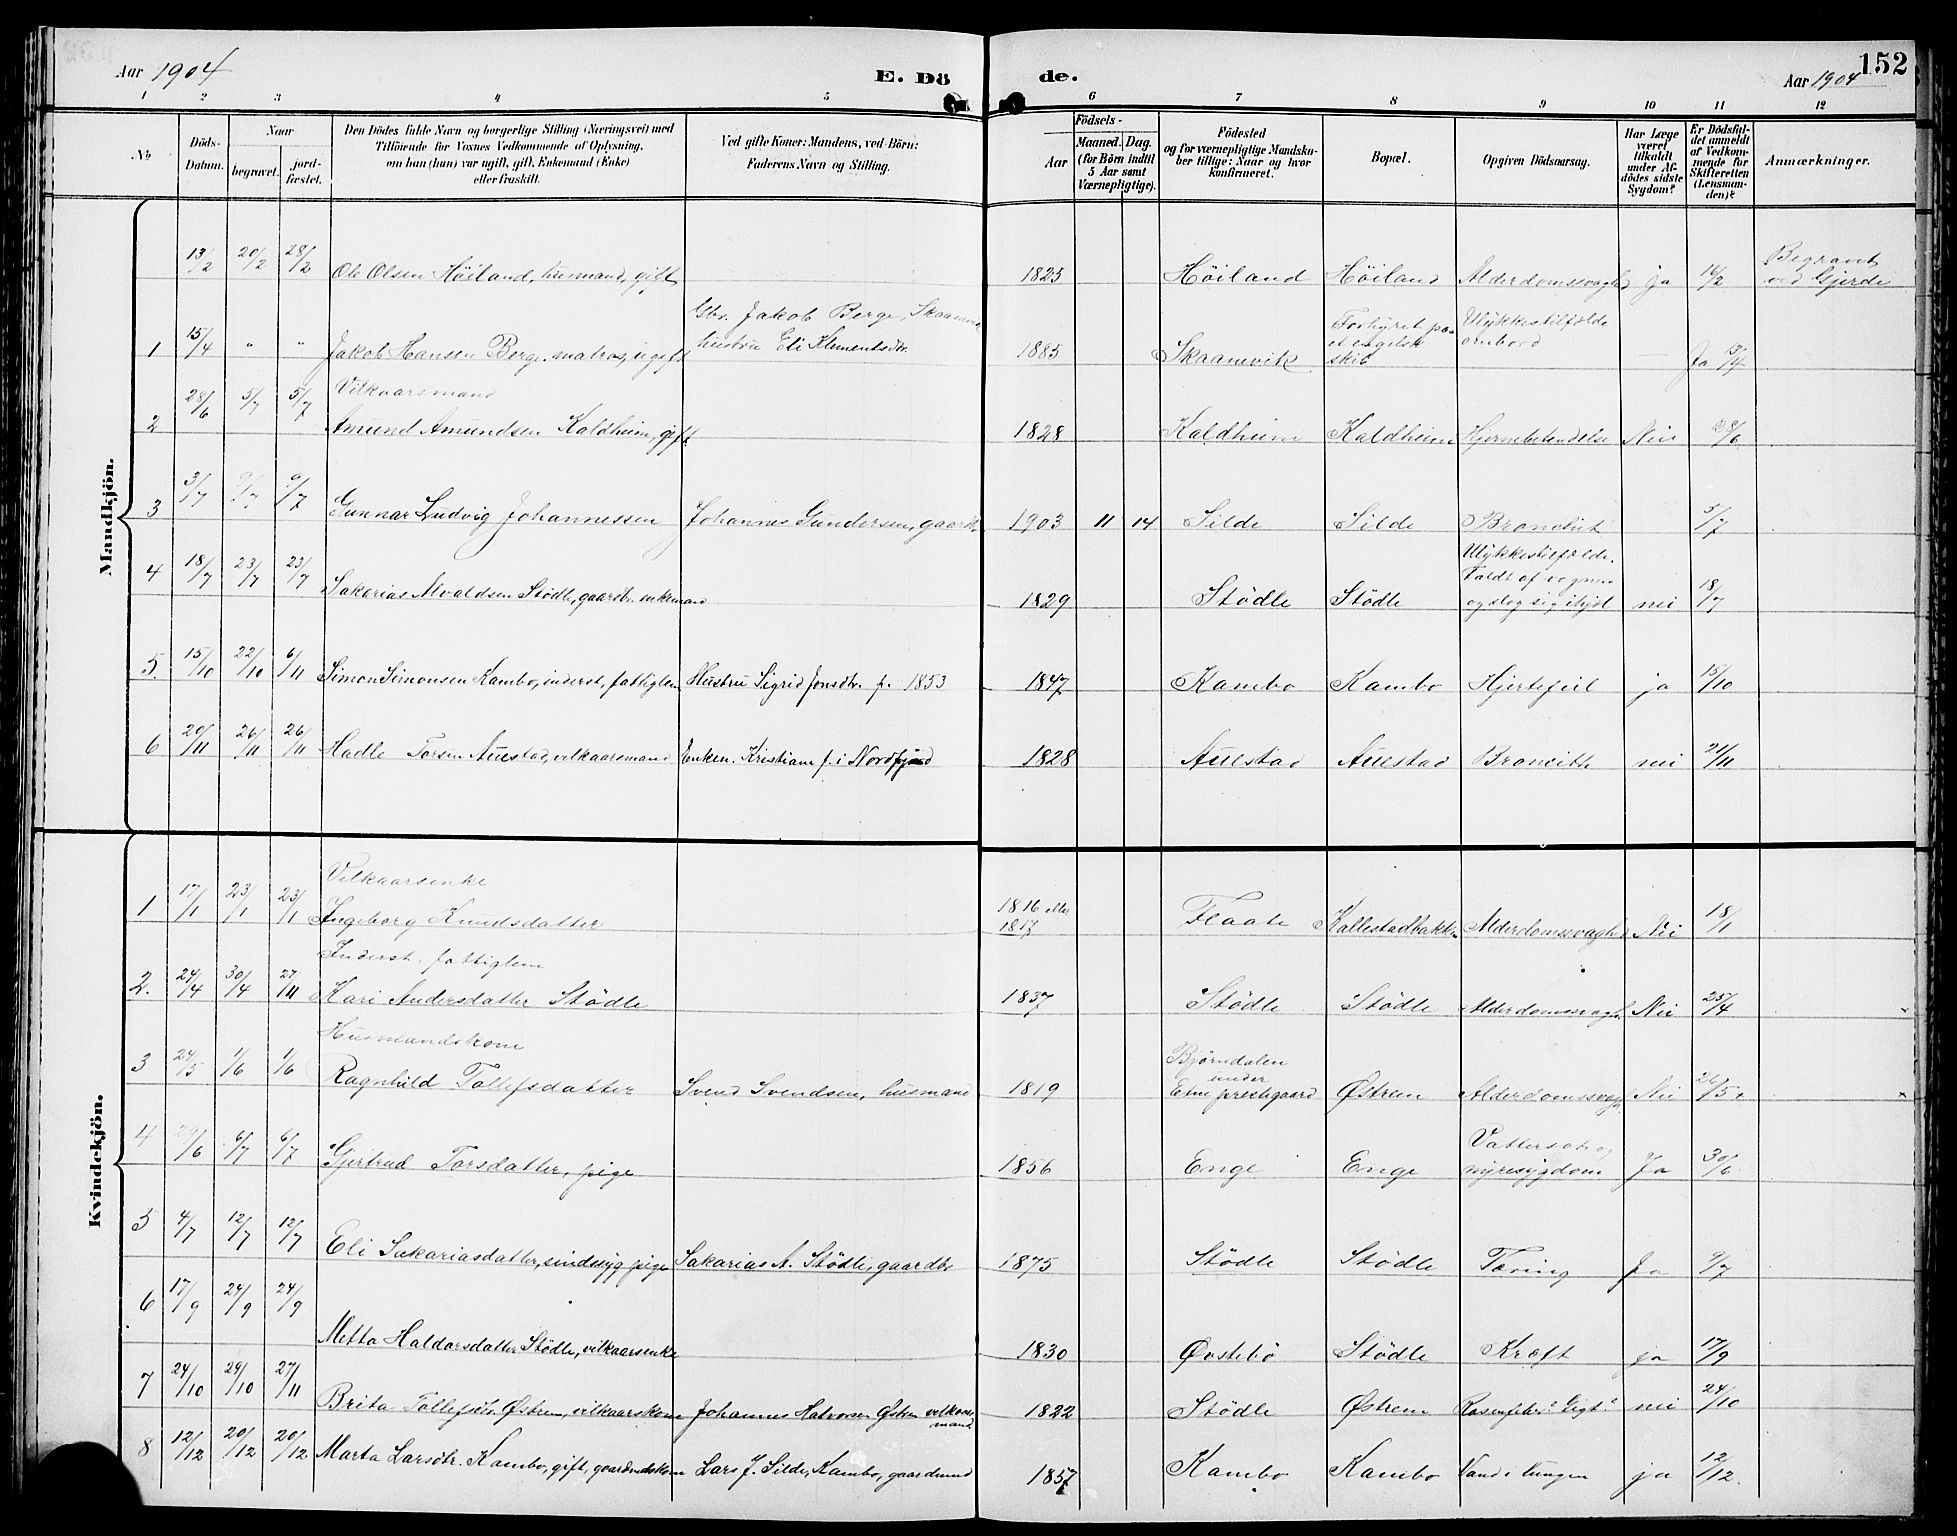 152
Aar 1904 E. Dö de. Aar 1904
1 2 3 4 5 6 7 8 9 10 11 12
No. Döds-Datum. Naar begravet. jord-fæstet. Den Dödes fulde Navn og borgerlige Stilling (Næringsvei) med Tilföiende for Voxnes Vedkommende af Oplysning, om han (hun) var ugift, gift, Enkemand (Enke) eller fraskilt. Ved gifte Koner: Mandens, ved Börn: Faderens Navn og Stilling. Födsels- Aar Maaned. Dag. (for Börn indtil 5 Aar samt Værnepligtige). Födested og for værnepligtige Mandska-ber tillige: Naar og hvor konfirmeret. Bopæl. Opgiven Dödsaarsag. Har Læge været tilkaldt under Af-dödes sidste Sygdom? Er Dödsfal-det anmeldt af Vedkom-mende for Skifteretten (Lensman-den)? Anmærkninger.
Mandkjön.
13/2 20/2 28/2 Ole Olsen Höiland, husmand, gift 1825 Höiland Höiland Alderdomssvaghed ja 14/2 Begravet ved Gjerde
1 15/4 " " Jakob Hansen Berge, matros, ugift Gbr. Jakob Berge, Skaanevik hustru Eli Klementsdtr. 1885 Skaanevik Forhyret paa et engelsk skib Ulykkestilfælde ombord — Ja 15/4
2 28/6 5/7 5/7 Vilkaarsmand
Amund Amundsen Kaldheim, gift 1828 Kaldheim Kaldheim Hjernebetendelse Nei 28/6
3 3/7 9/7 9/7 Gunnar Ludvig Johannessen Johannes Gundersen, gaardbr. 1903 11 14 Silde Silde Bronchit 5/7
4 18/7 23/7 23/7 Sakarias Alvaldsen Stödle, gaardbr. enkemand 1829 Stödle Stödle Ulykkestilfælde. Faldt af vognen og slog sig ihjel nei 18/7
5. 15/10 22/10 6/11 Simon Simonsen Kambo, inderst, fattiglem Hustru Sigrid Jonsdtr. f. 1853 1847 Kambo Kambo Hjertefeil ja 15/10
6 20/11 26/11 26/11 Hadle Torsen Auestad, vilkaarsmand Enken. Kristiane f. i Nordfjord 1828 Auestad Auestad Broncith nei 21/11
Kvindekjön.
1 17/1 23/1 23/1 Vilkaarsenke
Ingeborg Knudsdatter 1816 eller 1817 Flaate Kallestadbakken Alderdomssvaghed Nei 18/1
2. 24/4 30/4 27/11 Inderst. fattiglem
Kari Andersdatter Stödle 1837 Stödle Stödle Alderdomssvagh. Nei 25/4
3 24/5 1/6 1/6 Husmandskone
Ragnhild Tollefsdatter Svend Svendsen, husmand 1819 Björndalen under Etne prestegaard Østrem Alderdomssvagh. Nei 26/5
4 29/6 6/7 6/7 Gjertrud Torsdatter, pige 1856 Enge Enge Vattersot og nyresygdom Ja 30/6
5 4/7 12/7 12/7 Eli Sakariasdatter, sindssyg pige Sakarias A. Stödle, gaardbr. 1875 Stödle Stödle Tæring Ja 9/7
6 17/9 24/9 24/9 Metta Haldorsdatter Stödle, vilkaarsenke 1830 Øvstebö Stödle Kræft ja 17/9
7 24/10 29/10 27/11 Brita Tollefsdtr. Østrem, vilkaarskone Johannes Halvorsen Østrem vilkaarsmand 1822 Stödle Østrem Rosenfeber? Gigt? nei 24/10
8 12/12 20/12 20/12 Marta Larsdtr. Kambo, gift, gaardmdskone Lars J. Silde, Kambo, gaardmand 1857 Kambo Kambo Vand i lungen ja 12/12.